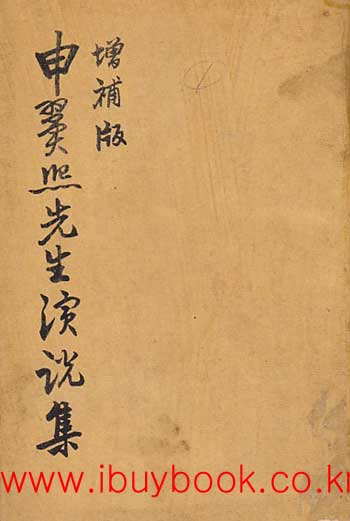 增補版
申翼熙先生演說集
www.ibuybook.co.kr